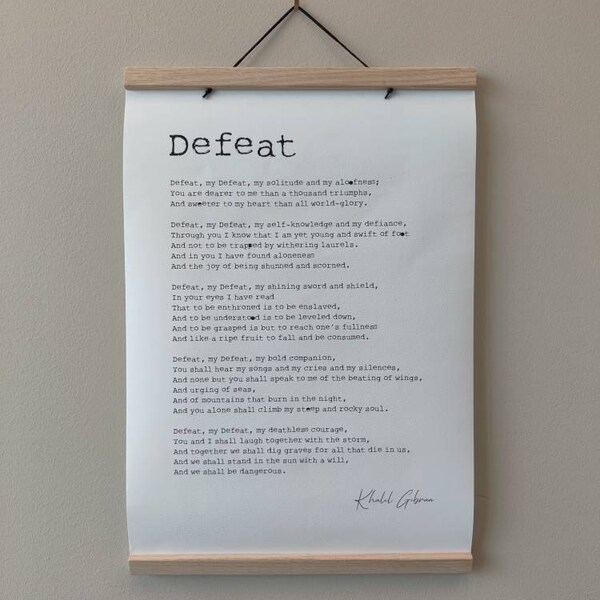 Defeat
Defeat, my Defeat, my solitude and my aloofness;
You are dearer to me than a thousand triumphs,
And sweeter to my heart than all world-glory.
Defeat, my Defeat, my self-knowledge and my defiance,
Through you I know that I am yet young and swift of foot
And not to be trapped by withering laurels.
And in you I have found aloneness
And the joy of being shunned and scorned.
Defeat, my Defeat, my shining sword and shield,
In your eyes I have read
That to be enthroned is to be enslaved,
And to be understood is to be leveled down,
And to be grasped is but to reach one's fullness
And like a ripe fruit to fall and be consumed.
Defeat, my Defeat, my bold companion,
You shall hear my songs and my cries and my silences,
And none but you shall speak to me of the beating of wings,
And urging of seas,
And of mountains that burn in the night,
And you alone shall climb my steep and rocky soul.
Defeat, my Defeat, my deathless courage,
You and I shall laugh together with the storm,
And together we shall dig graves for all that die in us,
And we shall stand in the sun with a will,
And we shall be dangerous.
Khalil Gibran